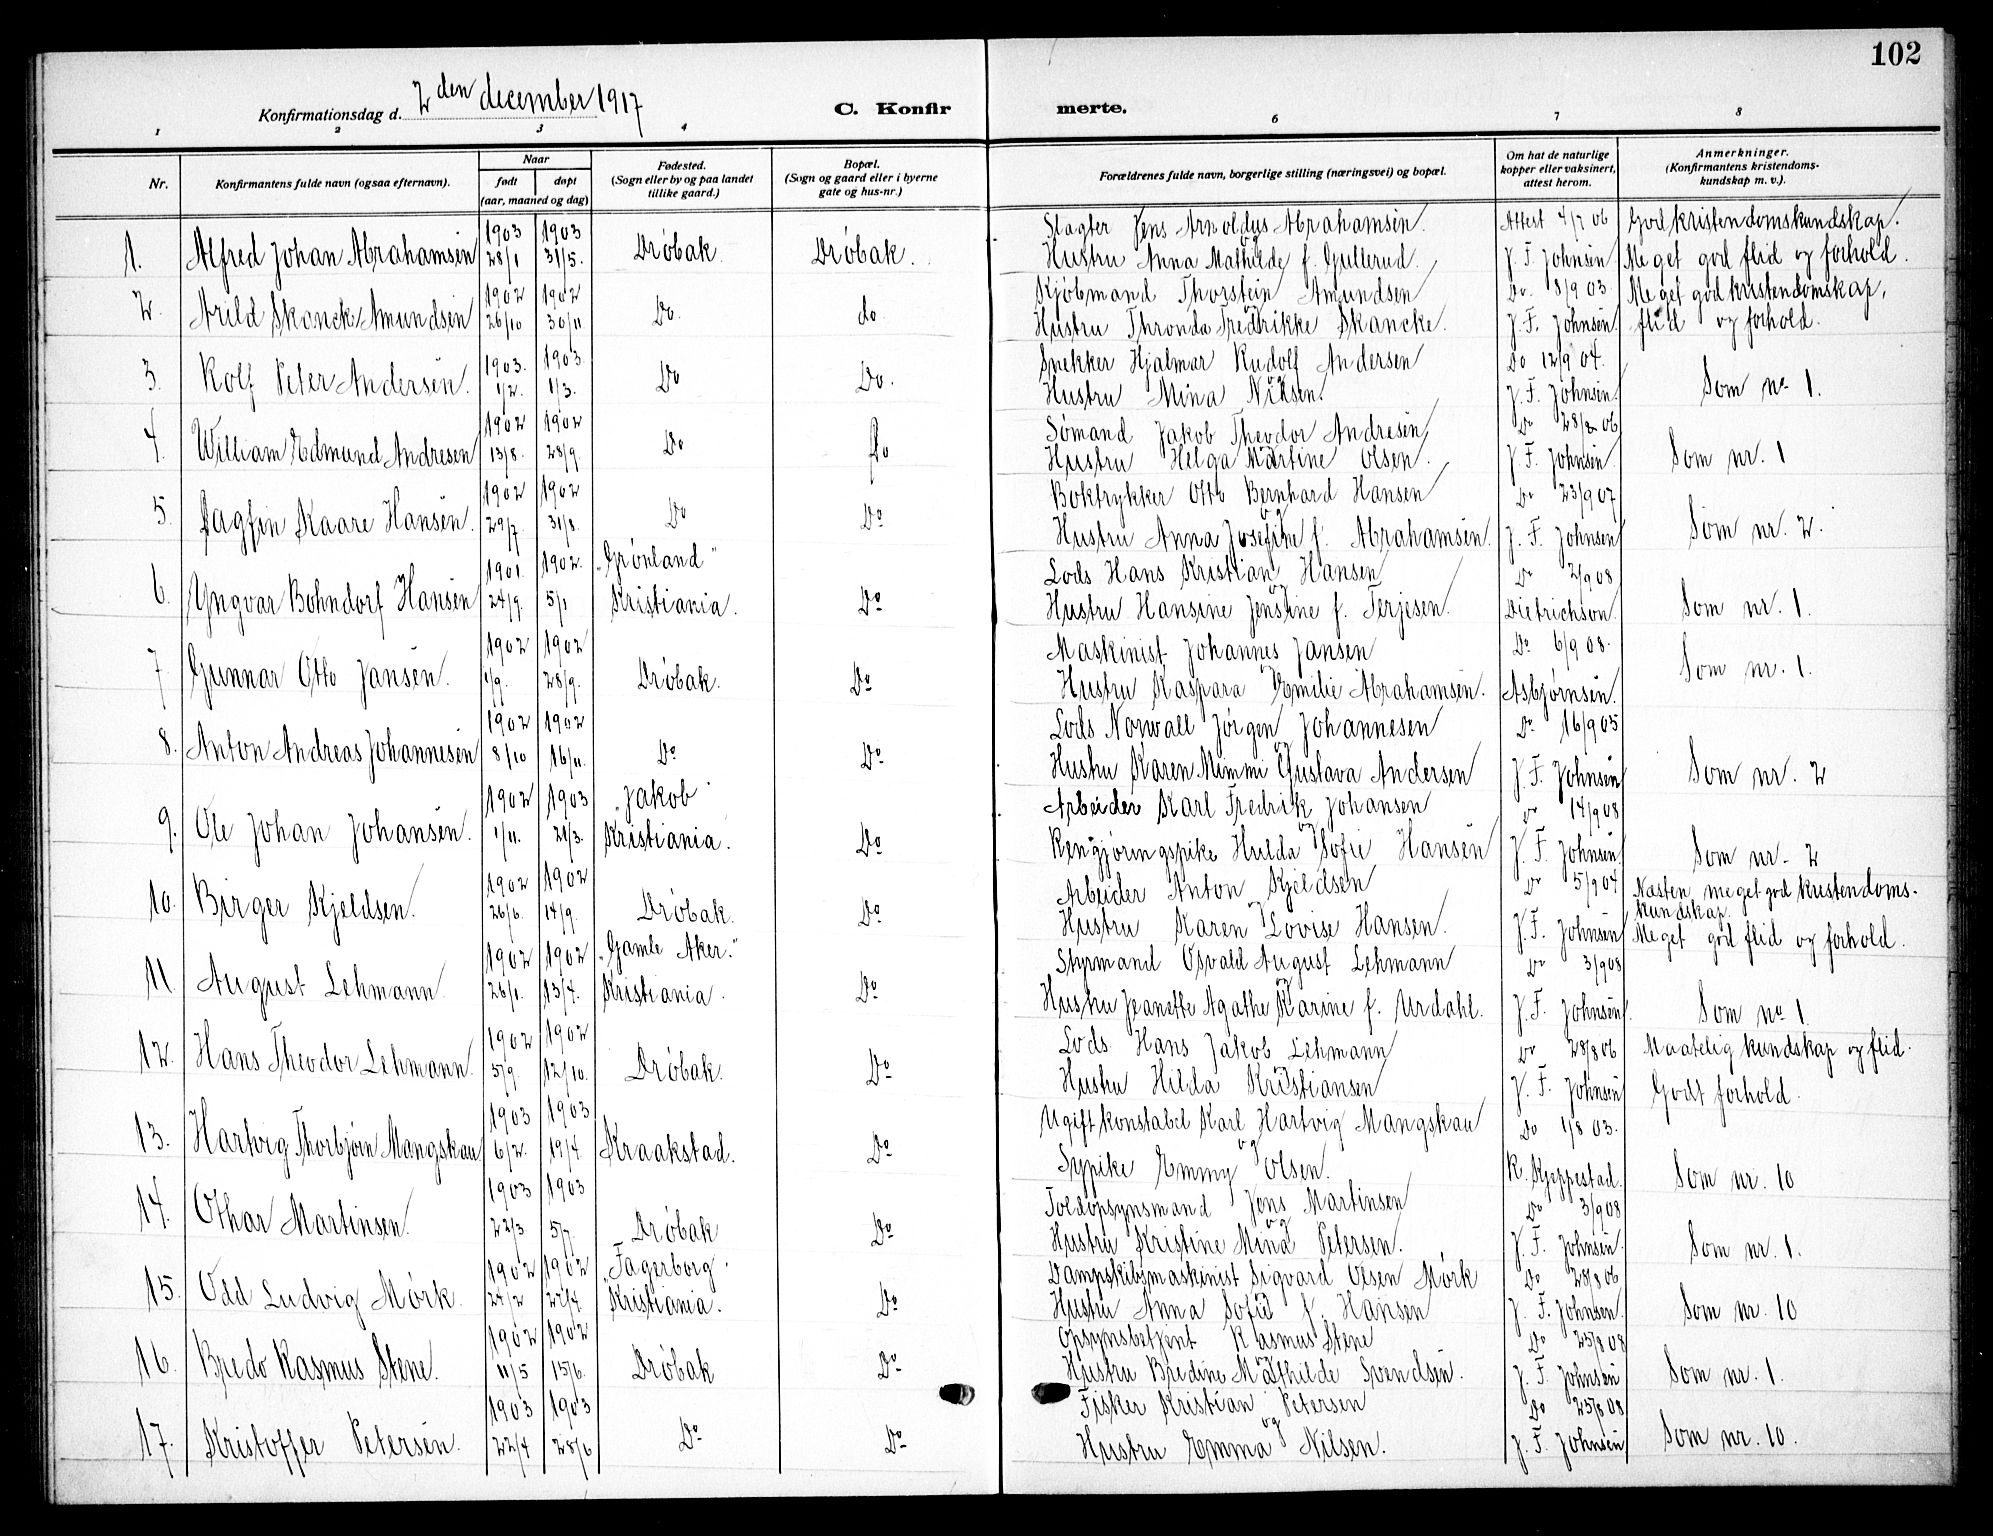 102
Konfirmationsdag d. 2den december 1917
C. Konfir merte.
1 2 3 4 6 7 8
Nr.
Konfirmantens fulde navn (ogsaa efternavn).
Naar
født døpt
(aar, maaned og dag)
Fødested.
(Sogn eller by og paa landet
tillike gaard.)
Bopæl.
(Sogn og gaard eller i byerne
gate og hus-nr.)
Forældrenes fulde navn, borgerlige stilling (næringsvei) og bopæl.
Om hat de naturlige
kopper eller vaksinert,
attest herom.
Anmerkninger.
(Konfirmantens kristendoms-
kundskap m. v.).
1903 1903 Slagter Jens Arnoldus Abrahamsen. Attest 4/7 06 God kristendomskundskap.
1. Alfred Johan Abrahamsen 28/1 31/5. Drøbak Drøbak. og Hustru Anna Mathilde f. Gullerud. J. F. Johnsen Meget god flid og forhold.
1902 1902 Kjøbmand Thorstein Amundsen Do. 8/9 03 Meget god kristendomskap,
2. Arild Skancke Amundsen 26/10 30/11 Do. do. og Hustru Thronda Fredrikke Skancke. J. F. Johnsen. flid og forhold.
1903. 1903. Snekker Hjalmar Rudolf Andersen Do 12/9 04.
3. Rolf Peter Andersen. 1/2. 1/3. Do Do. og Hustru Mina Nilsen. J. F. Johnsen. Som no 1.
1902 1902 Sømand Jakob Theodor Andresen Do 28/8 06
4. William Edmund Andresen 13/8. 28/9. Do Do og Hustru Helga Martine Olsen. J. F. Johnsen. Som nr. 1
1902 1902 Boktrykker Otto Bernhard Hansen Do 23/9 07
5. Dagfin Kaare Hansen. 29/7. 31/8. Do Do og Hustru Anna Josefine f. Abrahamsen. J. F. Johnsen Som nr. 2.
1901. 1902. "Grønland" Lods Hans Kristian Hansen Do 2/9 08
6. Yngvar Bohndorf Hansen 24/9. 5/1 Kristiania. Do og Hustru Hansine Jensine f. Terjesen. Dietrichson. Som nr. 1.
1902 1902 Maskinist Johannes Jansen Do 6/9 08.
7. Gunnar Otto Jansen. 1/9. 28/9. Drøbak. Do og Hustru Kaspara Emilie Abrahamsen. Asbjørnsen. Som nr. 1.
1902 1902 Lods Norwall Jørgen Johannesen Do 16/9 05
8. Anton Andreas Johannesen 8/10 16/11. Do Do og Hustru Karen Mimmi Gustava Andersen J. F. Johnsen Som nr. 2
1902 1903 "Jakob" Arbeider Karl Fredrik Johansen Do 14/9 08
9. Ole Johan Johansen. 1/11. 21/3. Kristiania. Do og Rengjøringspike Hulda Sofie Hansen J. F. Johnsen Som nr. 2
1902 1902 Arbeider Anton Kjeldsen Do 5/9 04 Næsten meget god kristendoms-
10. Birger Kjeldsen. 26/6. 14/9. Drøbak. Do og Hustru Karen Lovise Hansen. J. F. Johnsen kundskap. Meget god flid og forhold.
1902 1902 "Gamle Aker." Styrmand Osvald August Lehmann Do 3/9 08
11. August Lehmann 26/1. 13/4. Kristiania. Do og Hustru Jeanette Agathe Karine f. Urdahl. J. F. Johnsen. Som no 1.
1902 1902 Lods Hans Jakob Lehmann Do 28/8 06 Maatelig kundskap og flid.
12. Hans Theodor Lehmann. 5/9. 12/10. Drøbak. Do og Hustru Hilda Kristiansen J. F. Johnsen Godt forhold.
1903 1903 Ugift konstabel Karl Hartvig Mangskau Do 1/8 03.
13. Hartvig Thorbjørn Mangskau 6/2. 19/4. Kraakstad. Do og Sypike Emmy Olsen. K. Kjeppestad. Som nr. 10
1903 1903 Toldopsynsmand Jens Martinsen Do 3/9 08
14. Othar Martinsen. 22/3 5/7. Drøbak Do og Hustru Kristine Mina Petersen. J. F. Johnsen. Som nr. 1.
1902 1902 "Fagerborg". Dampskibsmaskinist Sigvard Olsen Mørk Do 28/8 06
15. Odd Ludvig Mørk. 24/2 27/4. Kristiania. Do Hustru Anna Sofie f. Hansen J. F. Johnsen. Som nr. 10
1902 1902 Opsynsbetjent Rasmus Stene Do 25/8 08
16. Bredo Rasmus Stene. 11/5 15/6. Drøbak Do og Hustru Bredine Mathilde Svendsen. J. F. Johnsen Som nr. 1.
1903 1903 Fisker Kristian Petersen Do 25/8 08
17. Kristoffer Petersen. 22/4 28/6 Do Do og Hustru Emma Nilsen. J. F. Johnsen Som nr. 10.